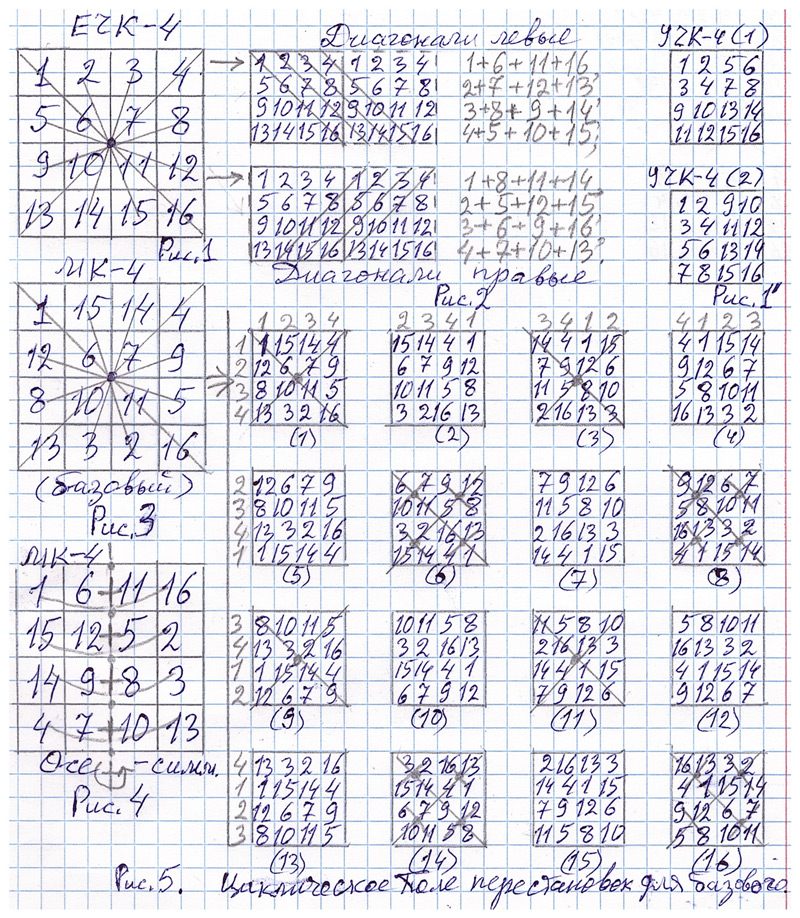 ЕЧК-4
1 2 3 4
5 6 7 8
9 10 11 12
13 14 15 16
Рис.1
Диагонали левые
1 2 3 4 1 2 3 4 1+6+11+16
5 6 7 8 5 6 7 8 2+7+12+13,
9 10 11 12 9 10 11 12 3+8+9+14,
13 14 15 16 13 14 15 16 4+5+10+15,
1 2 3 4 1 2 3 4 1+8+11+14
5 6 7 8 5 6 7 8 2+5+12+15,
9 10 11 12 9 10 11 12 3+6+9+16,
13 14 15 16 13 14 15 16 4+7+10+13.
Диагонали правые
Рис.2
УЧК-4 (1)
1 2 5 6
3 4 7 8
9 10 13 14
11 12 15 16
УЧК-4 (2)
1 2 9 10
3 4 11 12
5 6 13 14
7 8 15 16
Рис.1"
МК-4
1 15 14 4
12 6 7 9
8 10 11 5
13 3 2 16
(базовый)
Рис.3
МК-4
1 6 11 16
15 12 5 2
14 9 8 3
4 7 10 13
Осе -симм.
Рис.4
1 2 3 4 2 3 4 1 3 4 1 2 4 1 2 3
1 1 15 14 4 15 14 4 1 14 4 1 15 4 1 15 14
2 12 6 7 9 6 7 9 12 7 9 12 6 9 12 6 7
3 8 10 11 5 10 11 5 8 11 5 8 10 5 8 10 11
4 13 3 2 16 3 2 16 13 2 16 13 3 16 13 3 2
(1) (2) (3) (4)
2 12 6 7 9 6 7 9 12 7 9 12 6 9 12 6 7
3 8 10 11 5 10 11 5 8 11 5 8 10 5 8 10 11
4 13 3 2 16 3 2 16 13 2 16 13 3 16 13 3 2
1 1 15 14 4 15 14 4 1 14 4 1 15 4 1 15 14
(5) (6) (7) (8)
3 8 10 11 5 10 11 5 8 11 5 8 10 5 8 10 11
4 13 3 2 16 3 2 16 13 2 16 13 3 16 13 3 2
1 1 15 14 4 15 14 4 1 14 4 1 15 4 1 15 14
2 12 6 7 9 6 7 9 12 7 9 12 6 9 12 6 7
(9) (10) (11) (12)
4 13 3 2 16 3 2 16 13 2 16 13 3 16 13 3 2
1 1 15 14 4 15 14 4 1 14 4 1 15 4 1 15 14
2 12 6 7 9 6 7 9 12 7 9 12 6 9 12 6 7
3 8 10 11 5 10 11 5 8 11 5 8 10 5 8 10 11
(13) (14) (15) (16)
Рис.5. Циклическое поле перестановок для базового